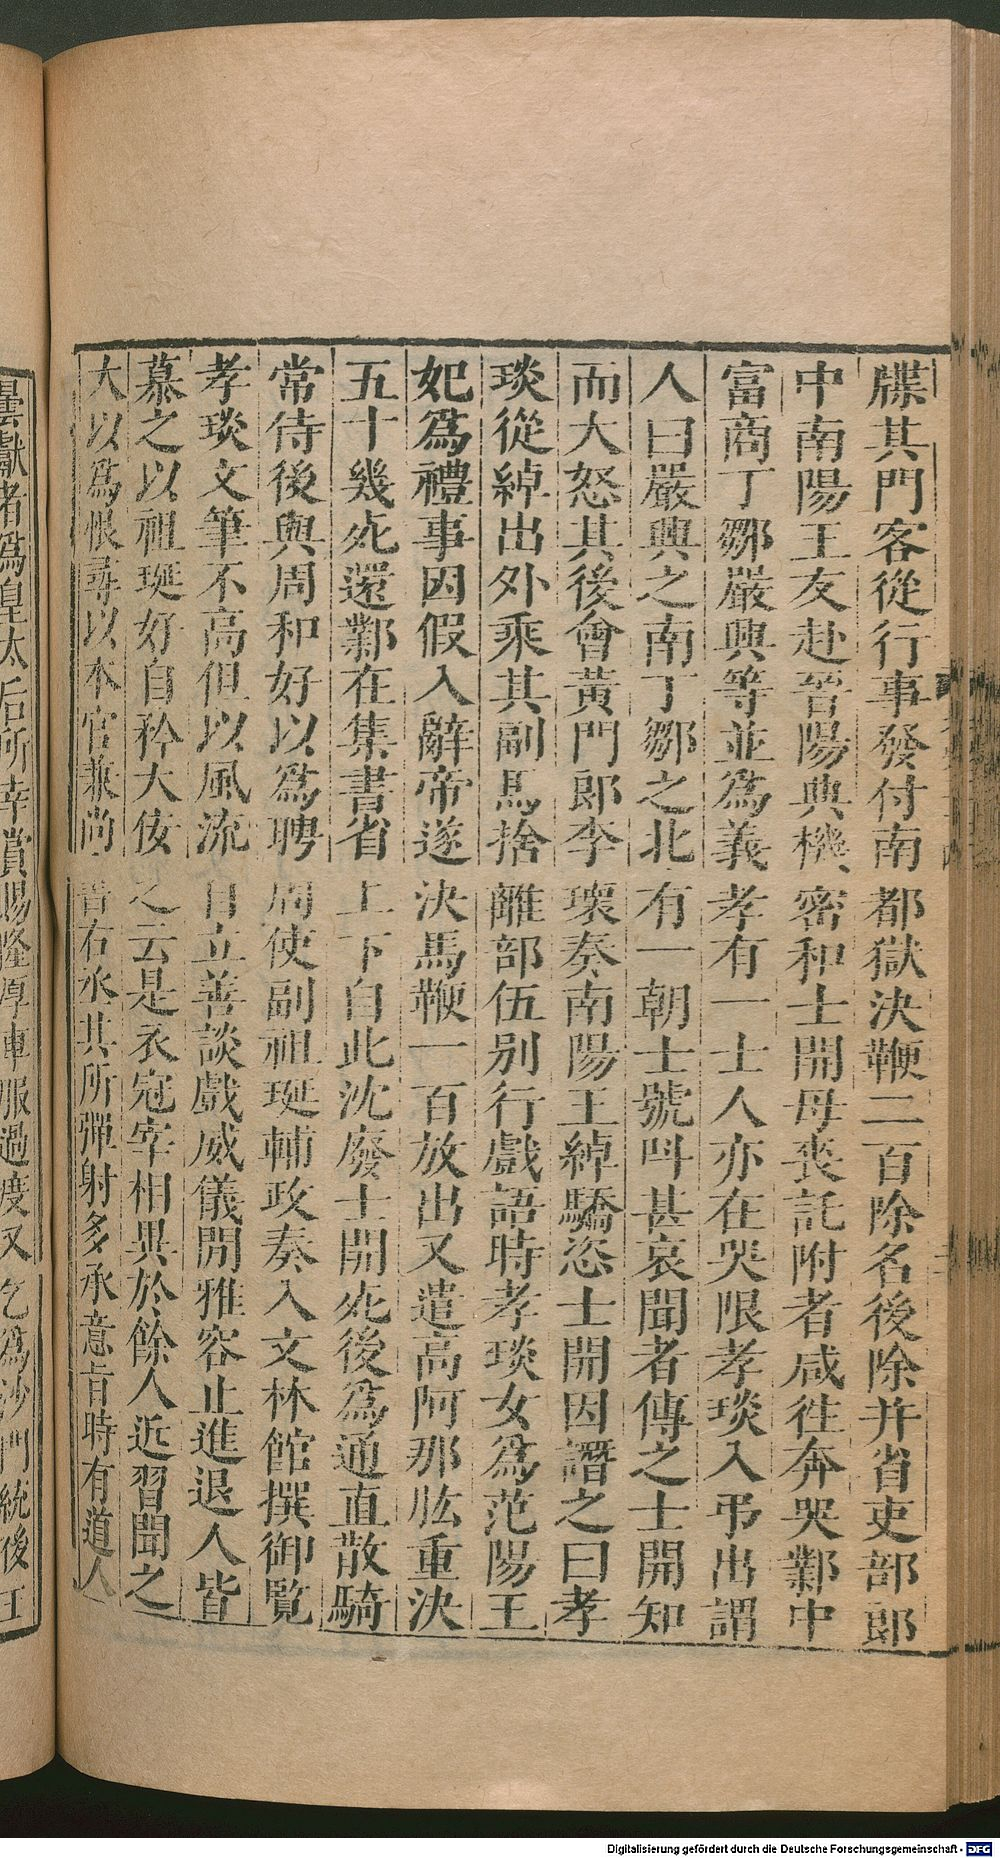 牒其門客從行事發付南都獄決鞭二百除名後除并省吏部郎
中南陽王友赴晉陽典機密和士開母喪託附者咸徃奔哭鄴中
富商丁鄒嚴興等並為義孝有一士人亦在哭限孝琰入弔出謂
人曰嚴興之南丁鄒之北有一朝士號呌甚哀聞者傳之士開知
而大怒其後會黃門郎李瓌奏南陽王綽驕恣士開因譖之曰孝
琰從綽出外乘其副馬捨離部伍別行戲語時孝琰女為范陽王
妃為禮事因假入辭帝遂決馬鞭一百放出又遣高阿那肱重決
五十幾死還鄴在集書省上下自此沈廢士開死後為通直散騎
常侍後與周和好以為聘周使副祖珽輔政奏入文林館撰御覽
孝琰文筆不高但以風流自立善談戲威儀閒雅容止進退人皆
慕之以祖珽好自矜大佞之云是衣冠宰相異於餘人近習聞之
大以為恨尋以本官兼尚書右丞其所彈射多承意旨時有道人
曇獻者為皇太后所幸賞賜隆厚車服過度又乞為沙門統後王
Digitalisierung gefördert durch die Deutsche Forschungsgemeinschaft - DFG